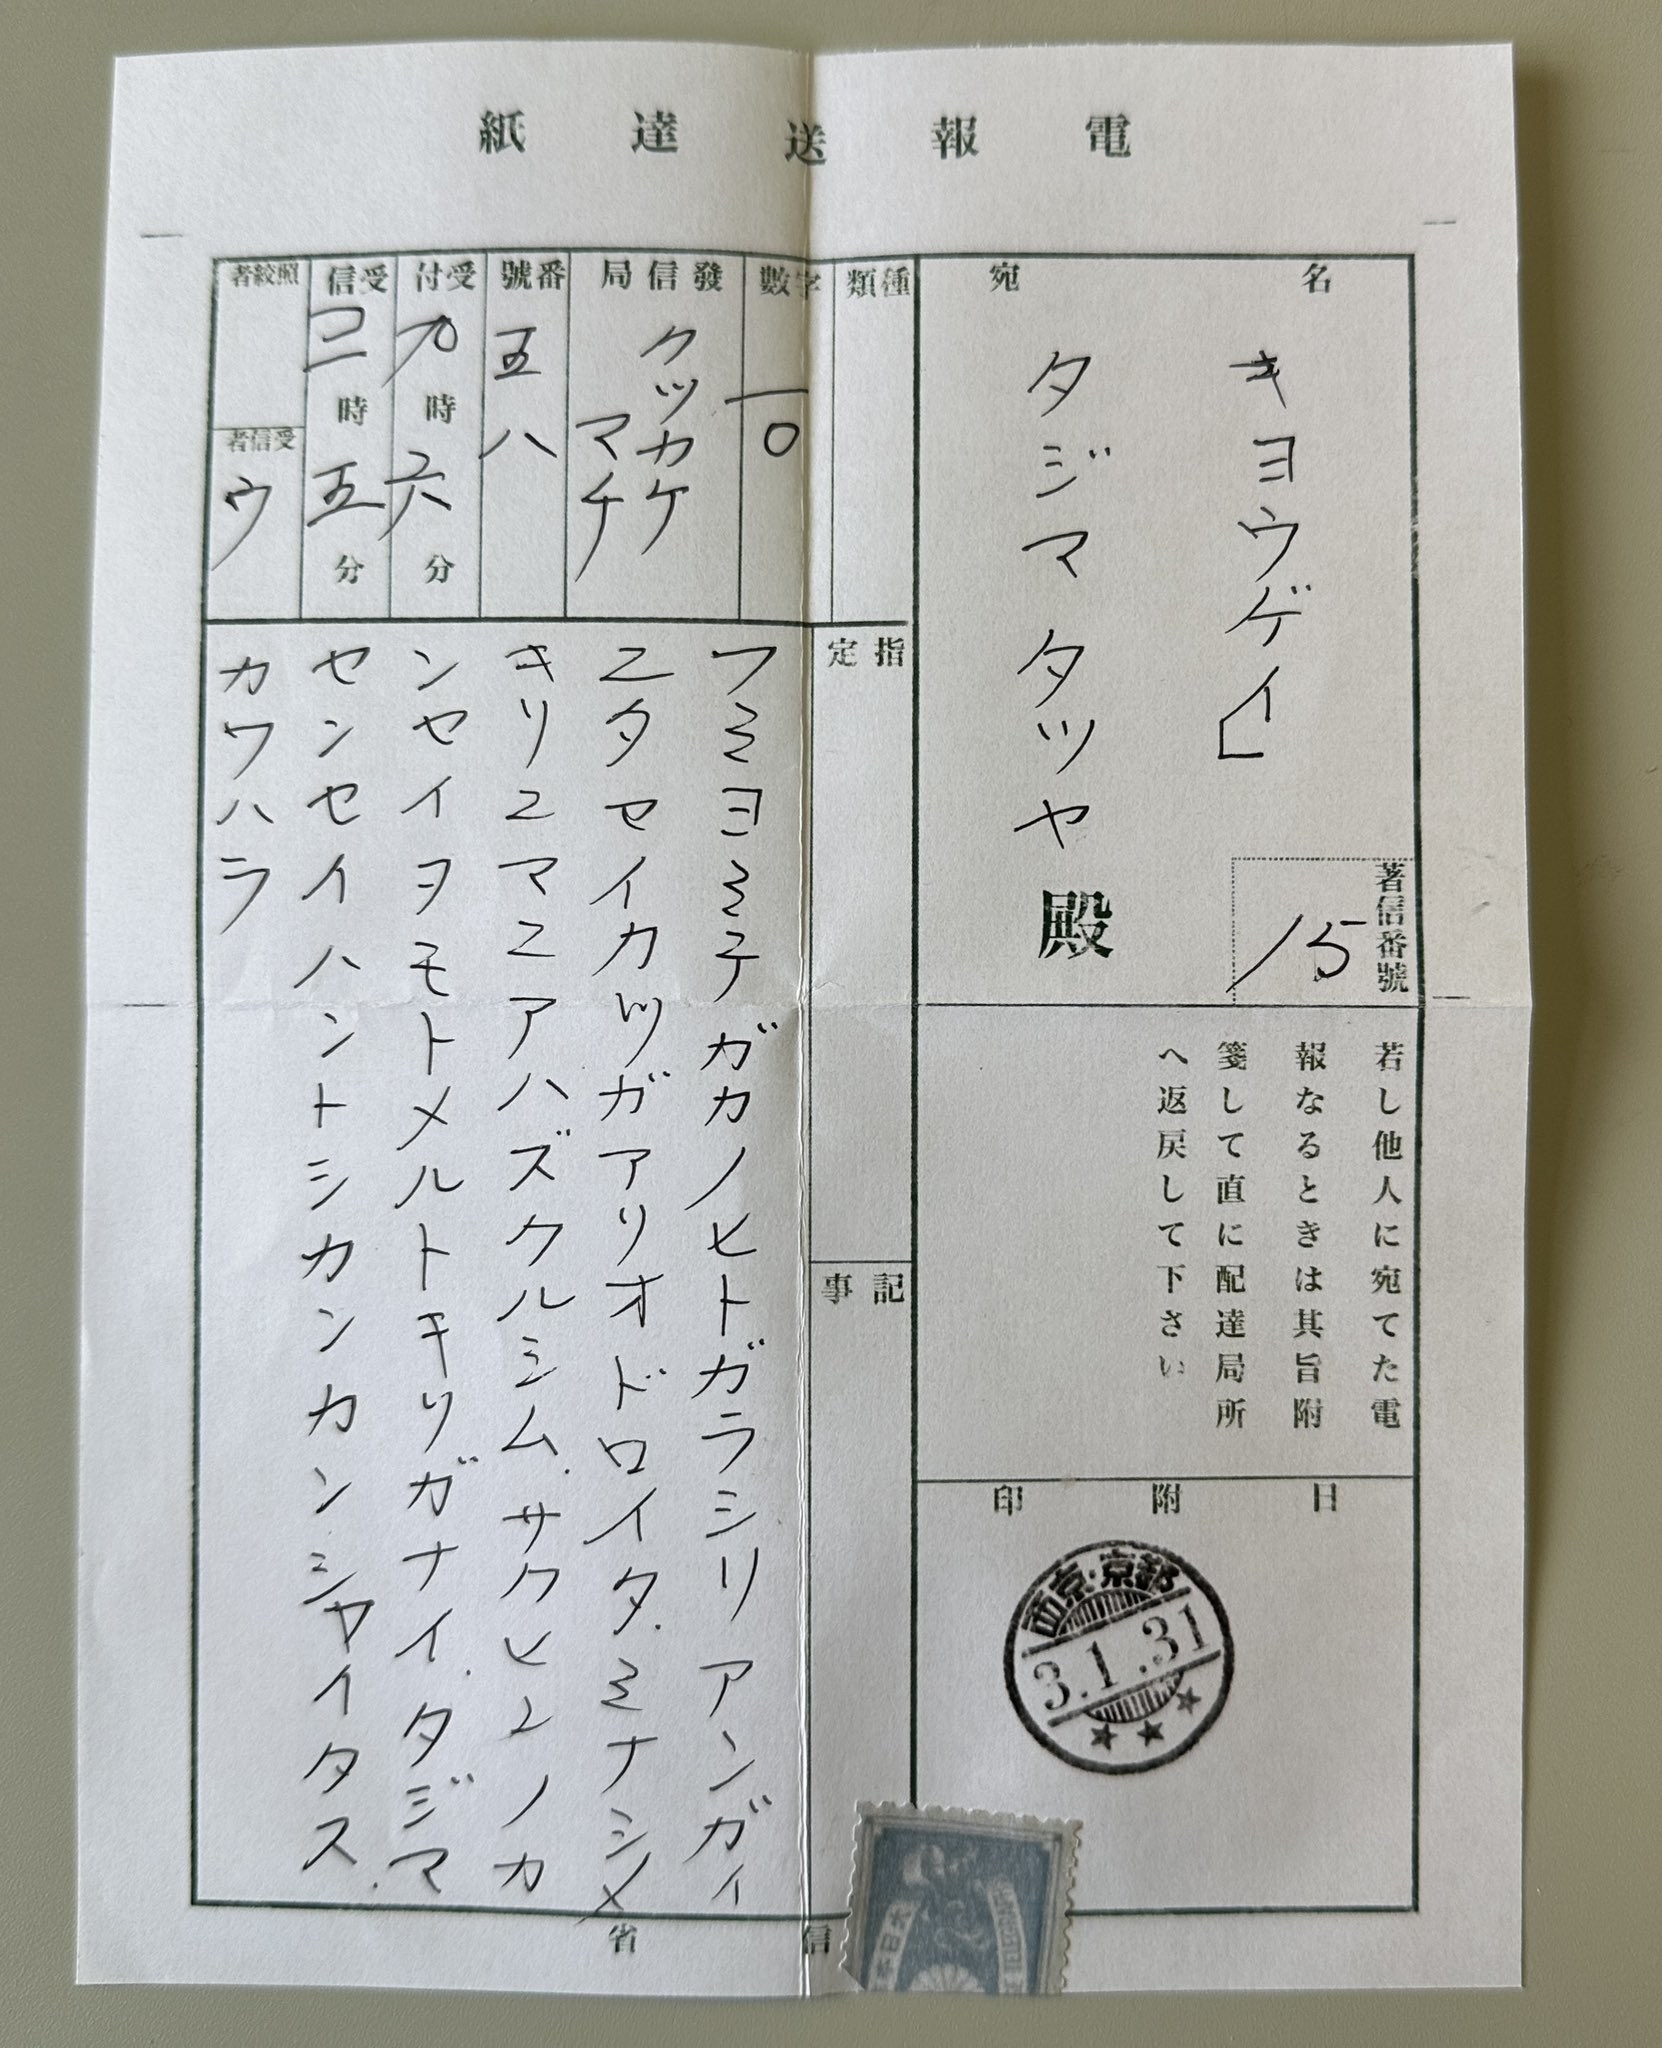 電報送達紙
宛名
キヨウゲイ」
タジマタツヤ 殿
著信番號
15
若し他人に宛てた電
報なるときは其旨附
箋して直に配達局所
へ返戻して下さい
日附印
西京・京都
3.1.31
種類
字數
一〇
發信局
クツカケ
マチ
番號
五八
受付
時 六 分
受信
コ二 時 五 分
照絞者
受信者
ウ
指定
記事
フミヨミテガカノヒトガラシリアンガイ
ニタセイカツガアリオドロイタ.ミナシメ
キリニマニアハズクルシム.サクヒンノカ
ンセイヲモトメルトキリガナイ.タジマ
センセイハントシカンカンシャイタス.
カワハラ
信省
大日本
TELEGRAPHS